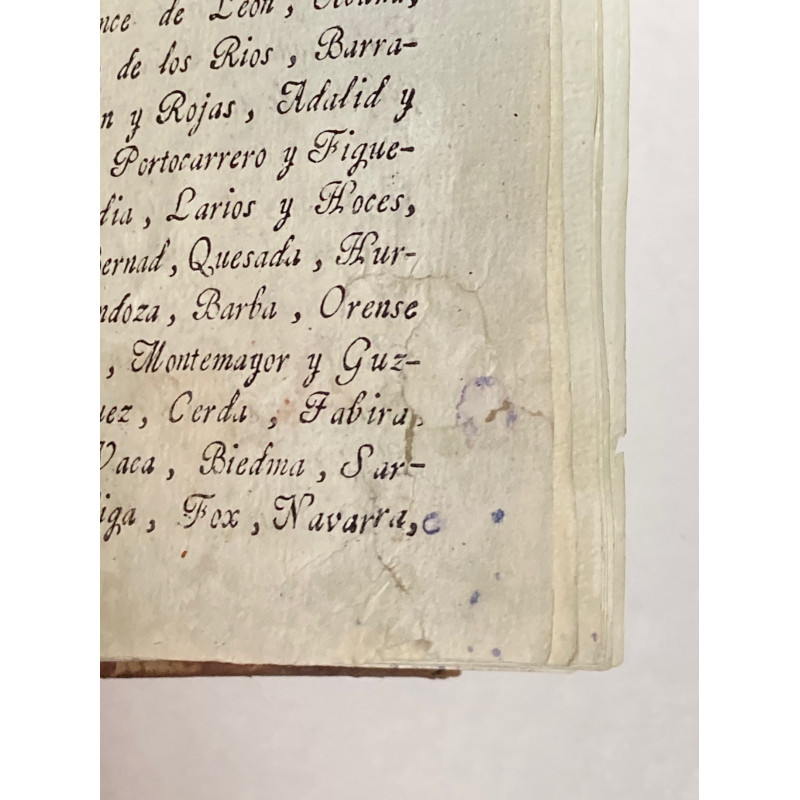 de Leon,
de los Rios, Barra-
n y Rojas, Adalid y
Portocarrero y Figue-
dia, Larios y Hoces,
Bernad, Quesada, Hur-
ndoza, Barba, Orense
, Montemayor y Guz-
uez, Cerda, Fabira,
Vaca, Biedma, Sar-
iga, Fox, Navarra,